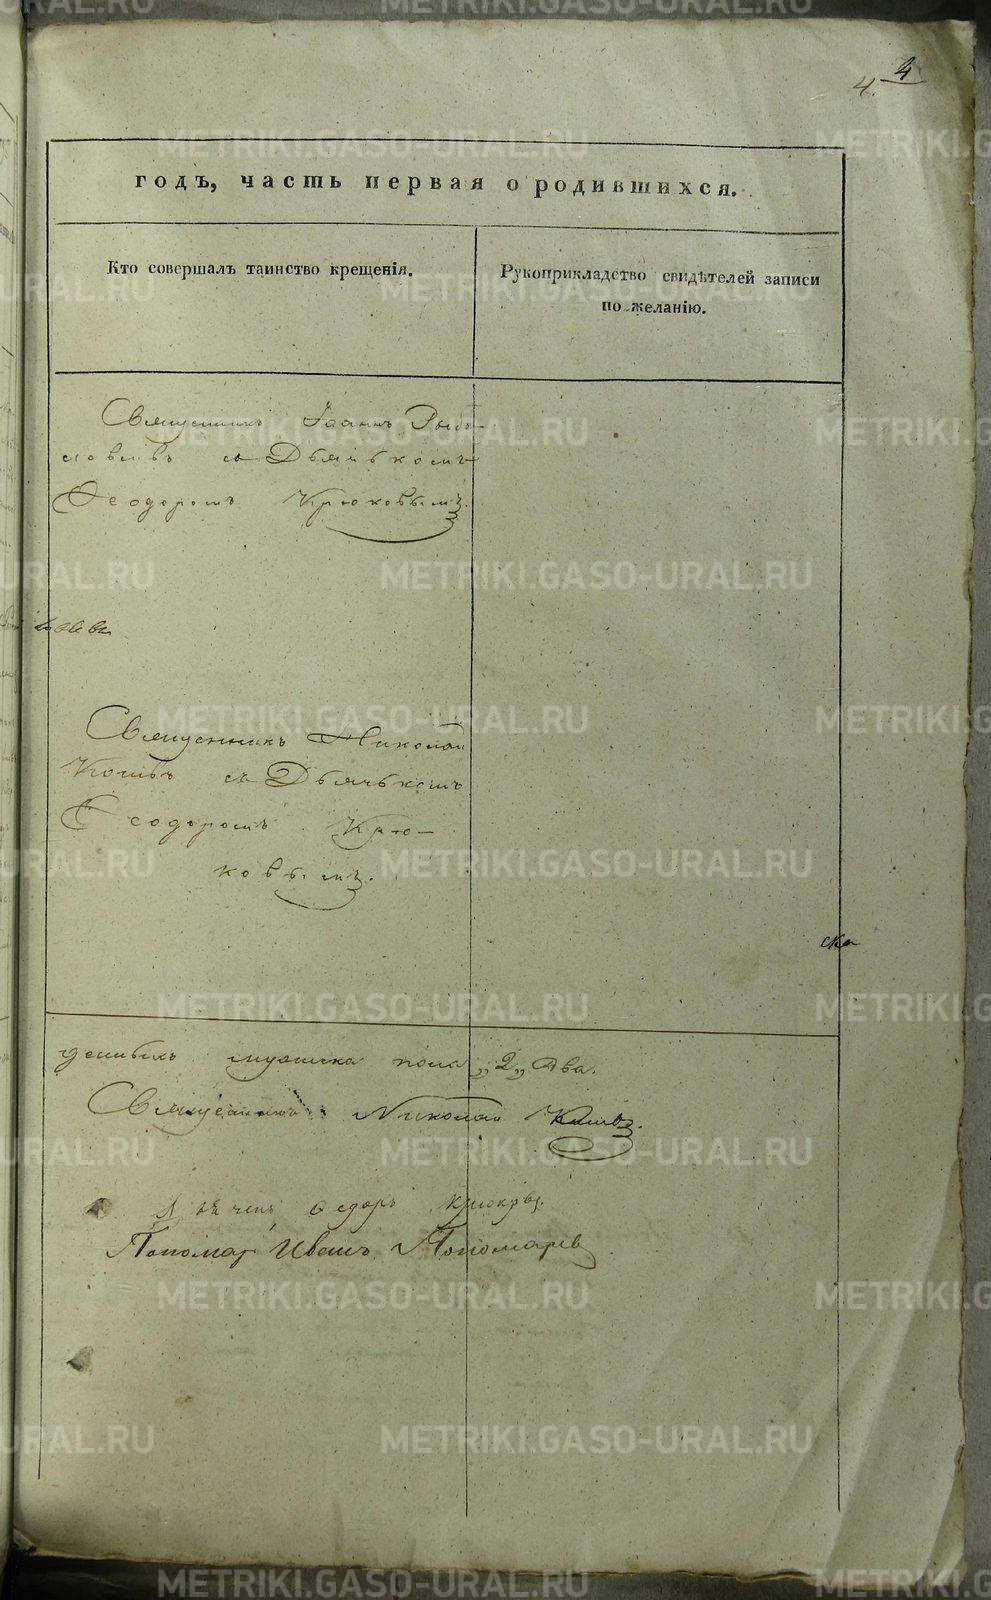 4. 4
годъ, часть первая о родившихся.
Кто совершалъ таинство крещенія.
Рукоприкладство свидѣтелей записи
по желанію.
Священникъ Іоаннъ Рыбо-
ловлевъ съ Дьячькомъ
Ѳеодоромъ Крюковымъ.
Священникъ Николай
съ Дьячькомъ
Ѳеодоромъ Крю-
ковымъ.
ска
мужеска пола „2„ Два.
Священникъ Николай
Федоръ Крюковъ.
Пономарь Иванъ Пономаревъ
METRIKI.GASO-URAL.RU